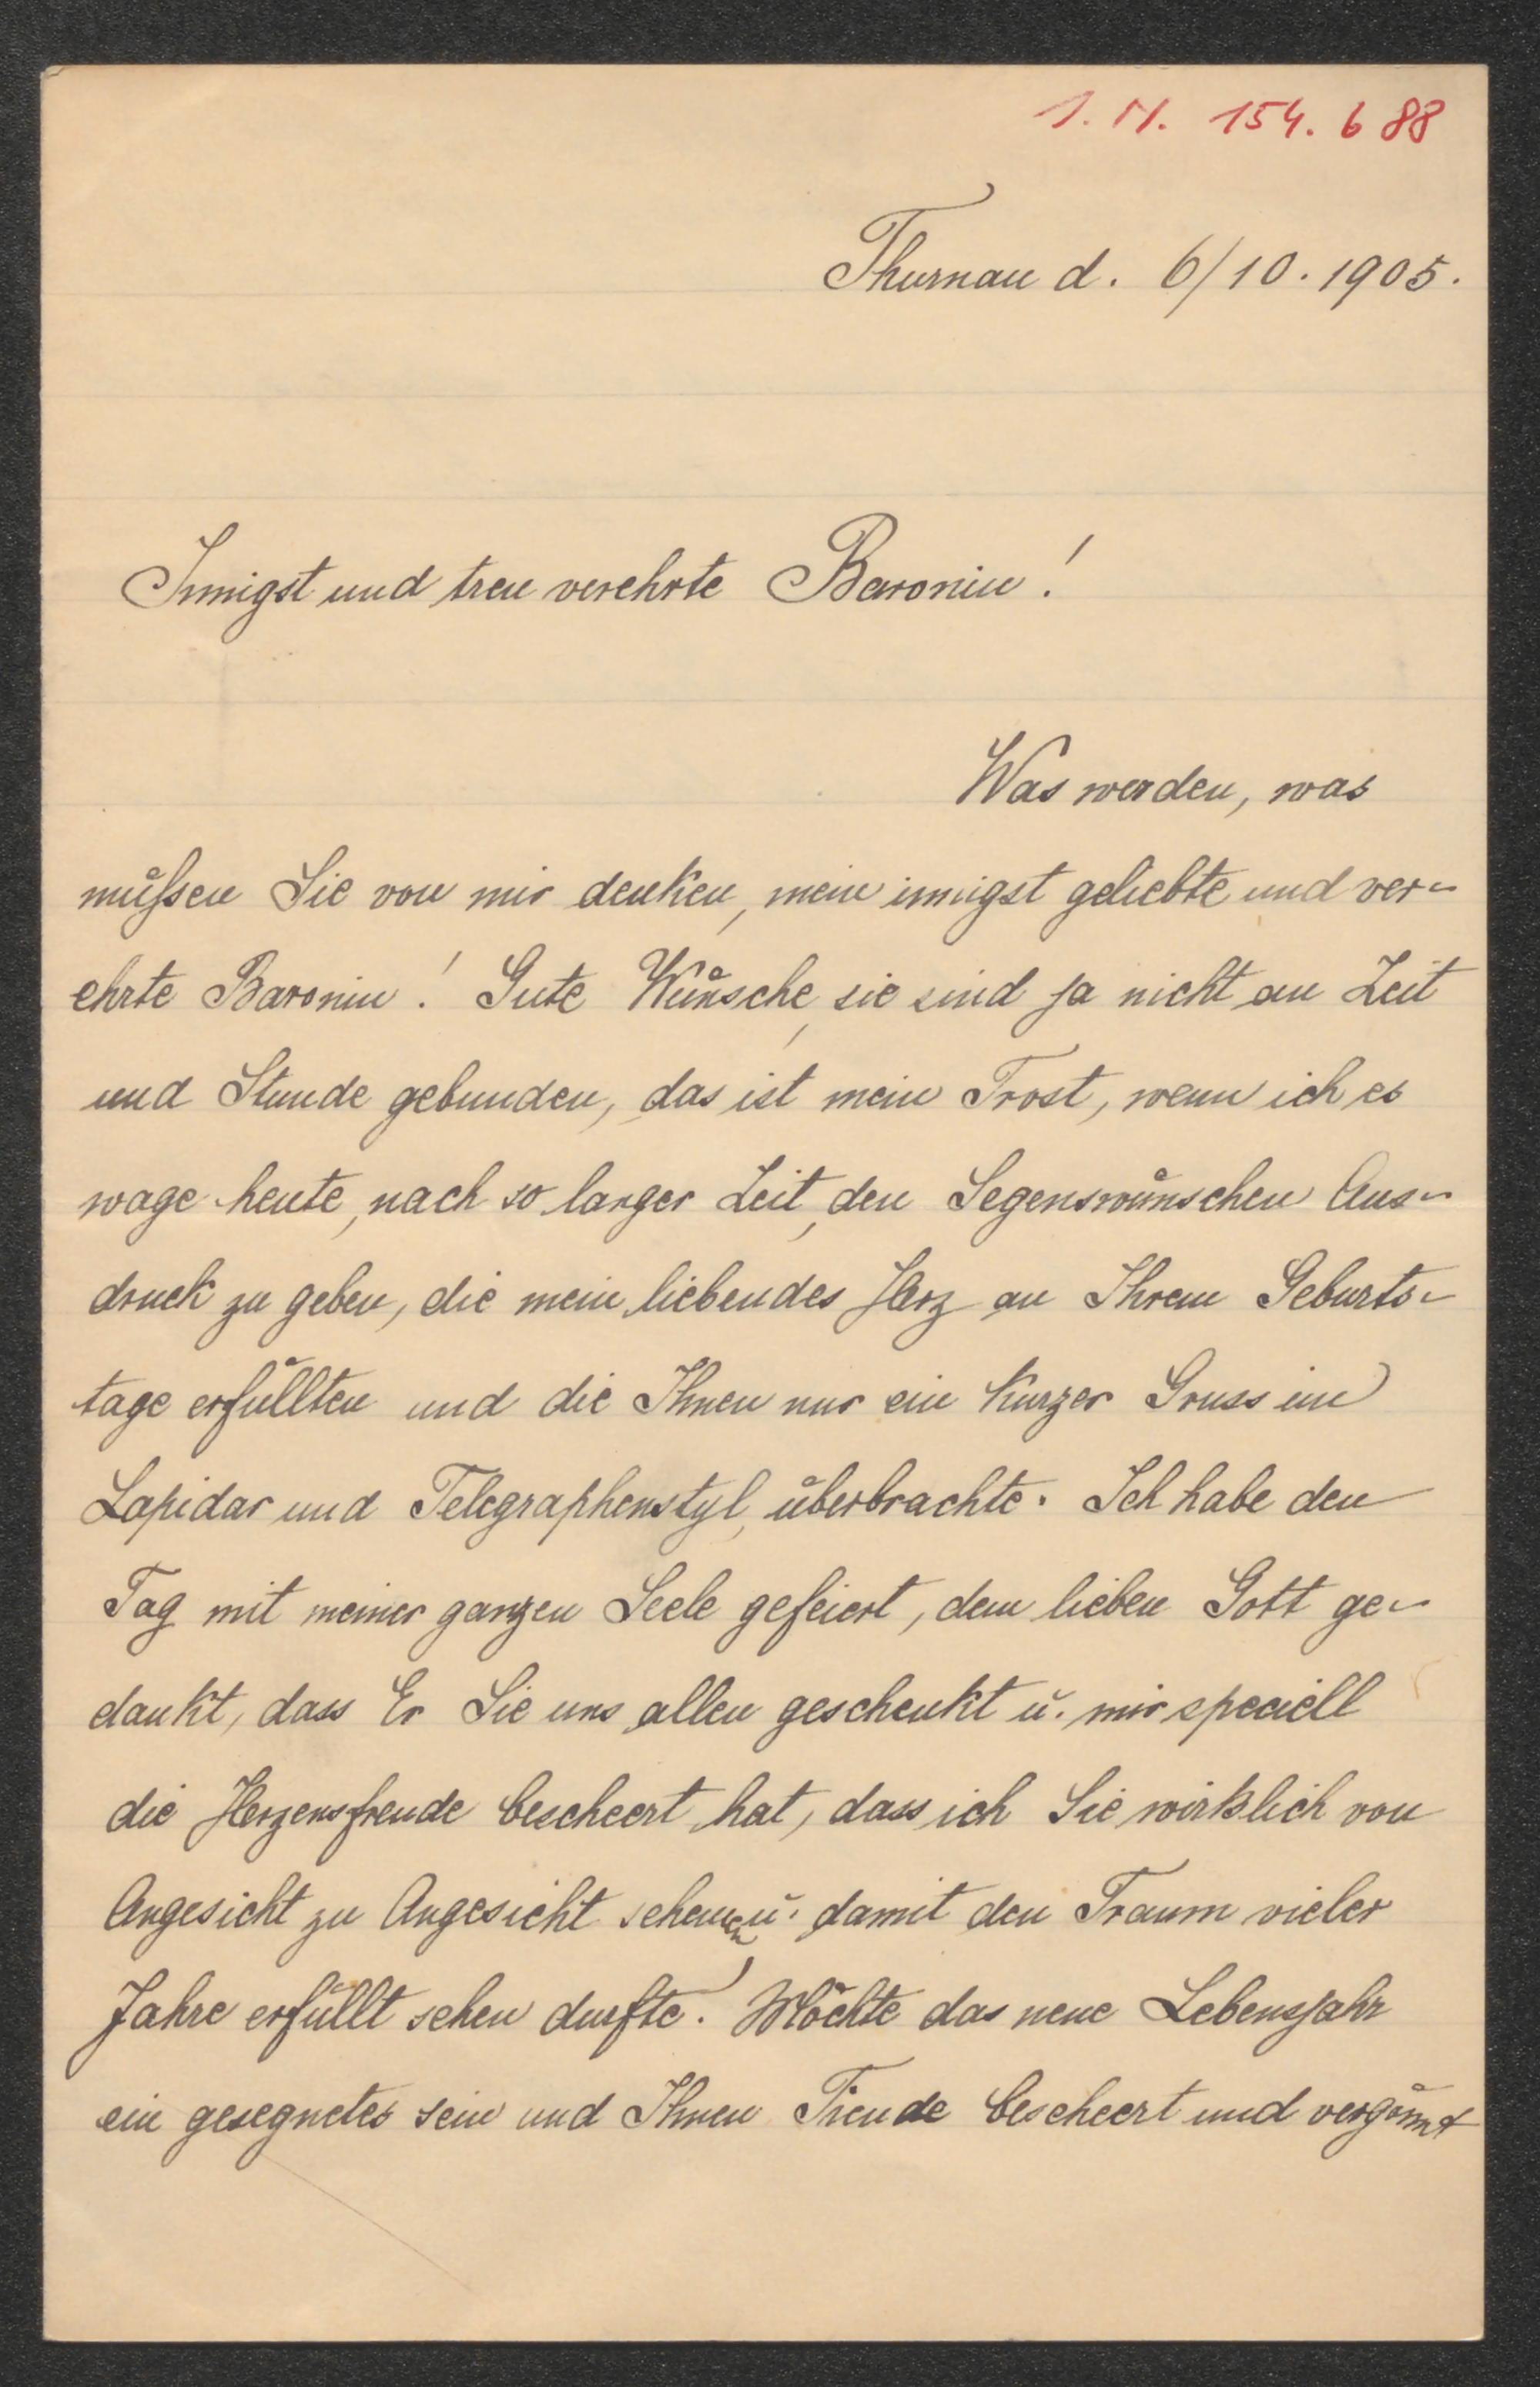 I. N. 154.688
Thurnau d. 6/10. 1905.
Innigst und treu verehrte Baronin!
Was werden, was
müßen Sie von mir denken, mein innigst geliebte und ver-
ehrte Baronin! Gute Wünsche, sie sind ja nicht an Zeit
und Stunde gebunden, das ist mein Trost, wenn ich es
wage heute, nach so langer Zeit, den Segenswünschen Aus-
druck zu geben, die mein liebendes Herz an Ihrem Geburts-
tage erfüllten und die Ihnen nur ein kurzer Gruss im
Lapidar und Telegraphenstyl, überbrachte. Ich habe den
Tag mit meiner ganzen Seele gefeiert, dem lieben Gott ge-
dankt, dass Er Sie uns allen geschenkt u. mir speciell
die Herzensfreude bescheert hat, dass ich Sie wirklich von
Angesicht zu Angesicht u. damit den Traum vieler
Jahre erfüllt sehen durfte. Möchte das neue Lebensjahr
ein gesegnetes sein und Ihnen Freude bescheert und vergönnt